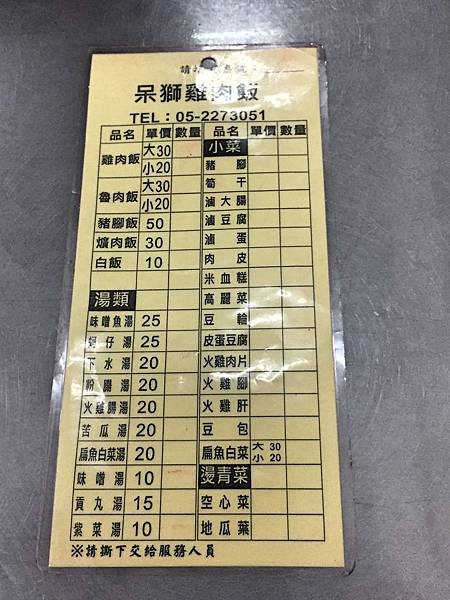 呆獅雞肉飯
TEL：05-2273051
品名 單價 數量 品名 單價 數量
雞肉飯 大30 小菜
小20 豬腳
魯肉飯 大30 筍干
小20 滷大腸
豬腳飯 50 滷豆腐
爌肉飯 30 滷蛋
白飯 10 肉皮
米血糕
湯類 高麗菜
味噌魚湯 25 豆輪
蚵仔湯 25 皮蛋豆腐
下水湯 20 火雞肉片
粉腸湯 20 火雞腳
火雞腸湯 20 火雞肝
苦瓜湯 20 豆包
扁魚白菜湯 20 扁魚白菜 大30 小20
味噌湯 10 燙青菜
貢丸湯 15 空心菜
紫菜湯 10 地瓜葉
※請撕下交給服務人員